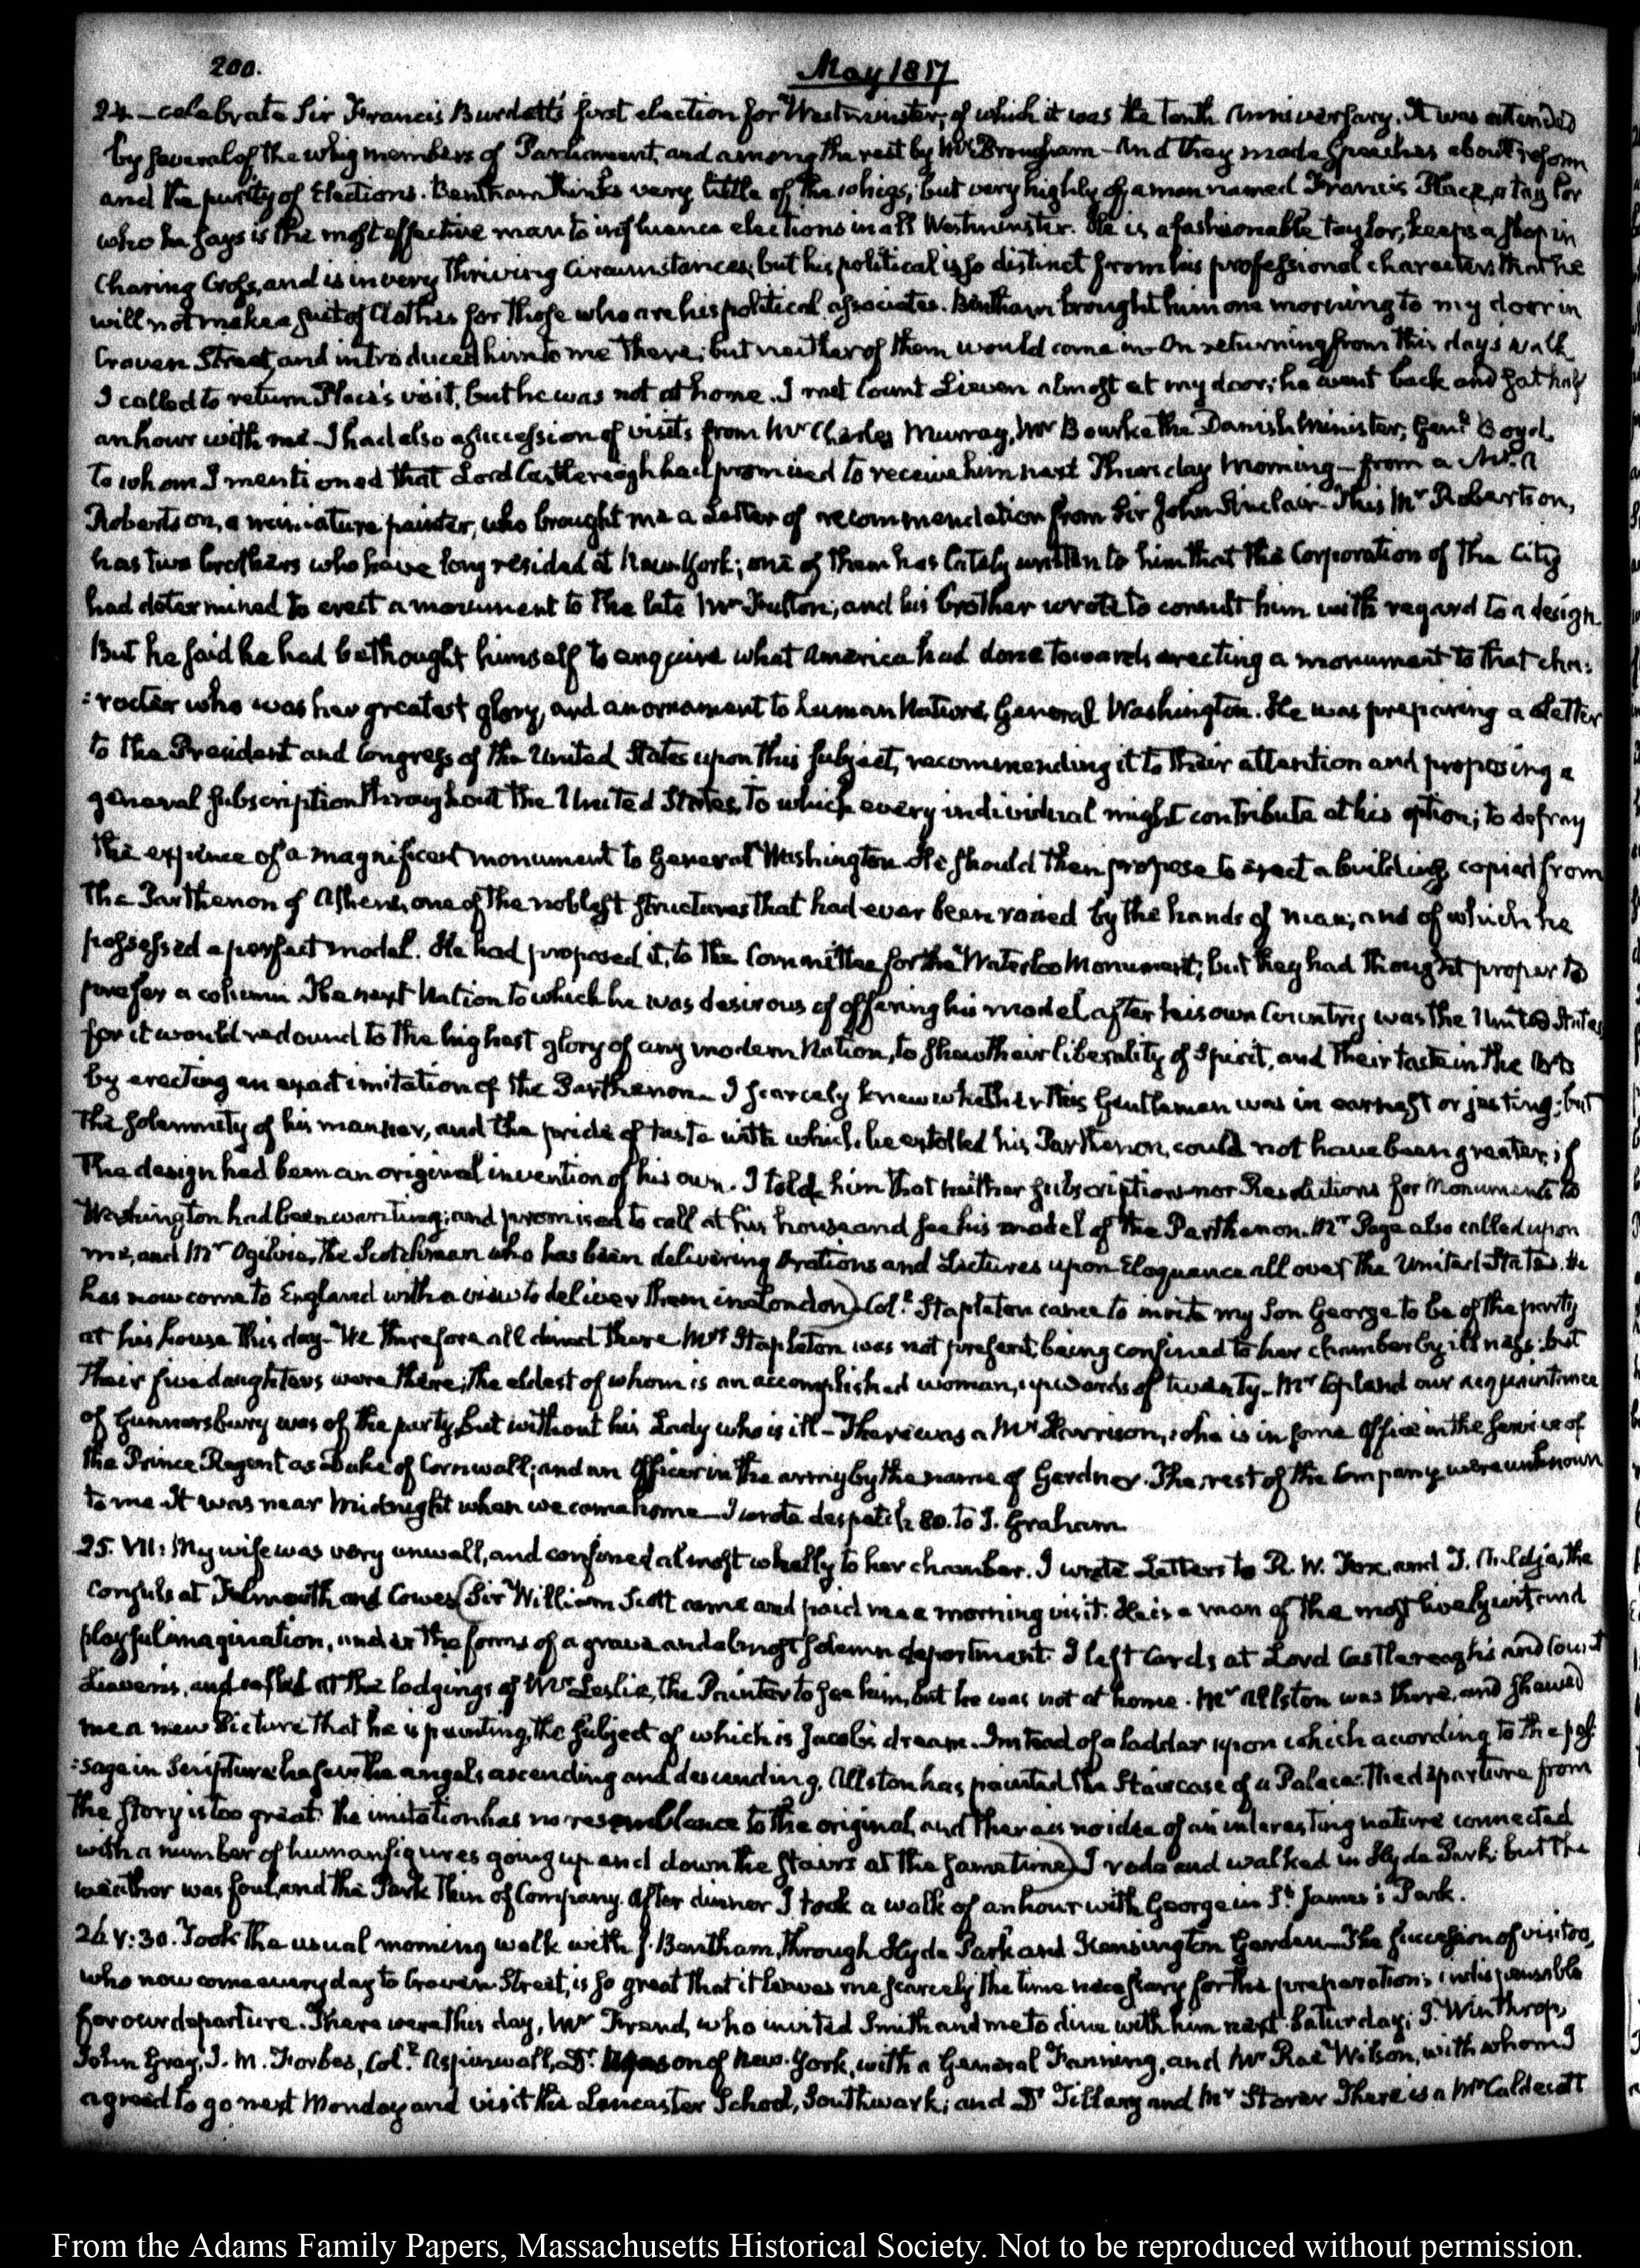 200.
May 1817
24 — celebrate Sir Francis Burdett's first election for Westminster; of which it was the tenth Anniversary. It was attended
by several of the whig members of Parliament, and among the rest by Mr Brougham — And they made speeches about reform
and the purity of Elections. Bentham thinks very little of the whigs; but very highly of a man named Francis Place, a taylor
who he says is the most effective man to influence elections in all Westminster. He is a fashionable taylor, keeps a shop in
Charing Cross, and is in very thriving Circumstances; but his political is so distinct from his professional character, that he
will not make a suit of Clothes for those who are his political associates. Bentham brought him one morning to my door in
Craven Street, and introduced him to me there; but neither of them would come in. On returning from this day's walk
I called to return Place's visit, but he was not at home. I met Count Lieven almost at my door; he went back and sat half
an hour with me — I had also a succession of visits from Mr Charles Murray, Mr Bourke the Danish Minister, Genl Boyd,
to whom I mentioned that Lord Castlereagh had promised to receive him next Thursday Morning — from a Mr A
Robertson, a miniature painter, who brought me a Letter of recommendation from Sir John Sinclair. This Mr Robertson,
has two brothers who have long resided at New York; one of them has lately written to him that the Corporation of the City
had determined to erect a monument to the late Mr Fulton; and his brother wrote to consult him with regard to a design.
But he said he had bethought himself to enquire what America had done towards erecting a monument to that cha:
:racter who was her greatest glory, and an ornament to human Nature, General Washington. He was preparing a Letter
to the President and Congress of the United States upon this subject, recommending it to their attention and proposing a
general subscription throughout the United States, to which every individual might contribute at his option; to defray
the expence of a magnificent monument to General Washington. He should then propose to erect a building copied from
the Parthenon of Athens, one of the noblest structures that had ever been raised by the hands of man; and of which he
possessed a perfect model. He had proposed it, to the Committee for the Waterloo Monument; but they had thought proper to
prefer a column. The next Nation to which he was desirous of offering his model after his own Country was the United States,
for it would redound to the highest glory of any modern Nation, to shew their liberality of Spirit, and their taste in the Arts
by erecting an exact imitation of the Parthenon. I scarcely knew whether this Gentleman was in earnest or jesting; but
the solemnity of his manner, and the pride of taste with which he extolled his Parthenon, could not have been greater, if
the design had been an original invention of his own. I told him that neither subscriptions nor Resolutions for Monuments to
Washington had been wanting; and promised to call at his house and see his model of the Parthenon. Mr Page also called upon
me, and Mr Ogilvie, the Scotchman who has been delivering Orations and Lectures upon Eloquence all over the United States. He
has now come to England with a view to deliver them in London) Coll Stapleton came to invite my Son George to be of the party
at his house this day — We therefore all dined there Mrs Stapleton was not present, being confined to her chamber by illness; but
their five daughters were there; the eldest of whom is an accomplished woman, upwards of twenty. Mr Copland our acquaintance
of Gunnersbury was of the party, but without his Lady who is ill — There was a Mr Harrison, who is in some Office in the service of
the Prince Regent as Duke of Cornwall; and an Officer in the army by the name of Gardner. The rest of the Company were unknown
to me. It was near Midnight when we came home — I wrote despatch 80. to J. Graham.
25. VII: My wife was very unwell, and confined almost wholly to her chamber. I wrote Letters to R. W. Fox, and T. Auldjo, the
Consuls at Falmouth and Cowes (Sir William Scott came and paid me a morning visit. He is a man of the most lively wit and
playful imagination, under the forms of a grave and almost solemn deportment. I left Cards at Lord Castlereagh's and Count
Lieven's, and called at the lodgings of Mr Leslie, the Painter to see him, but he was not at home. Mr Allston was there, and shewed
me a new Picture that he is painting, the subject of which is Jacob's dream. Instead of a ladder upon which according to the pas:
:sage in Scripture he saw the angels ascending and descending, Allston has painted the Staircase of a Palace. The departure from
the story is too great. The imitation has no resemblance to the original, and there is no idea of an interesting nature connected
with a number of human figures going up and down the stairs at the same time) I rode and walked in Hyde Park; but the
weather was foul, and the Park thin of Company. After dinner I took a walk of an hour with George in St. James's Park.
26. V:30. Took the usual morning walk with J. Bentham, through Hyde Park and Kensington Garden — The succession of visitors,
who now come every day to Craven Street, is so great that it leaves me scarcely the time necessary for the preparations indispensable
for our departure. There were this day, Mr Frend, who invited Smith and me to dine with him next Saturday; J. Winthrop,
John Gray, J. M. Forbes, Coll Aspinwall, Dr. of New-York, with a General Fanning, and Mr Rae Wilson, with whom I
agreed to go next Monday and visit the Lancaster School, Southwark; and Dr Tillary and Mr Storer There is a Mr Caldecott
From the Adams Family Papers, Massachusetts Historical Society. Not to be reproduced without permission.